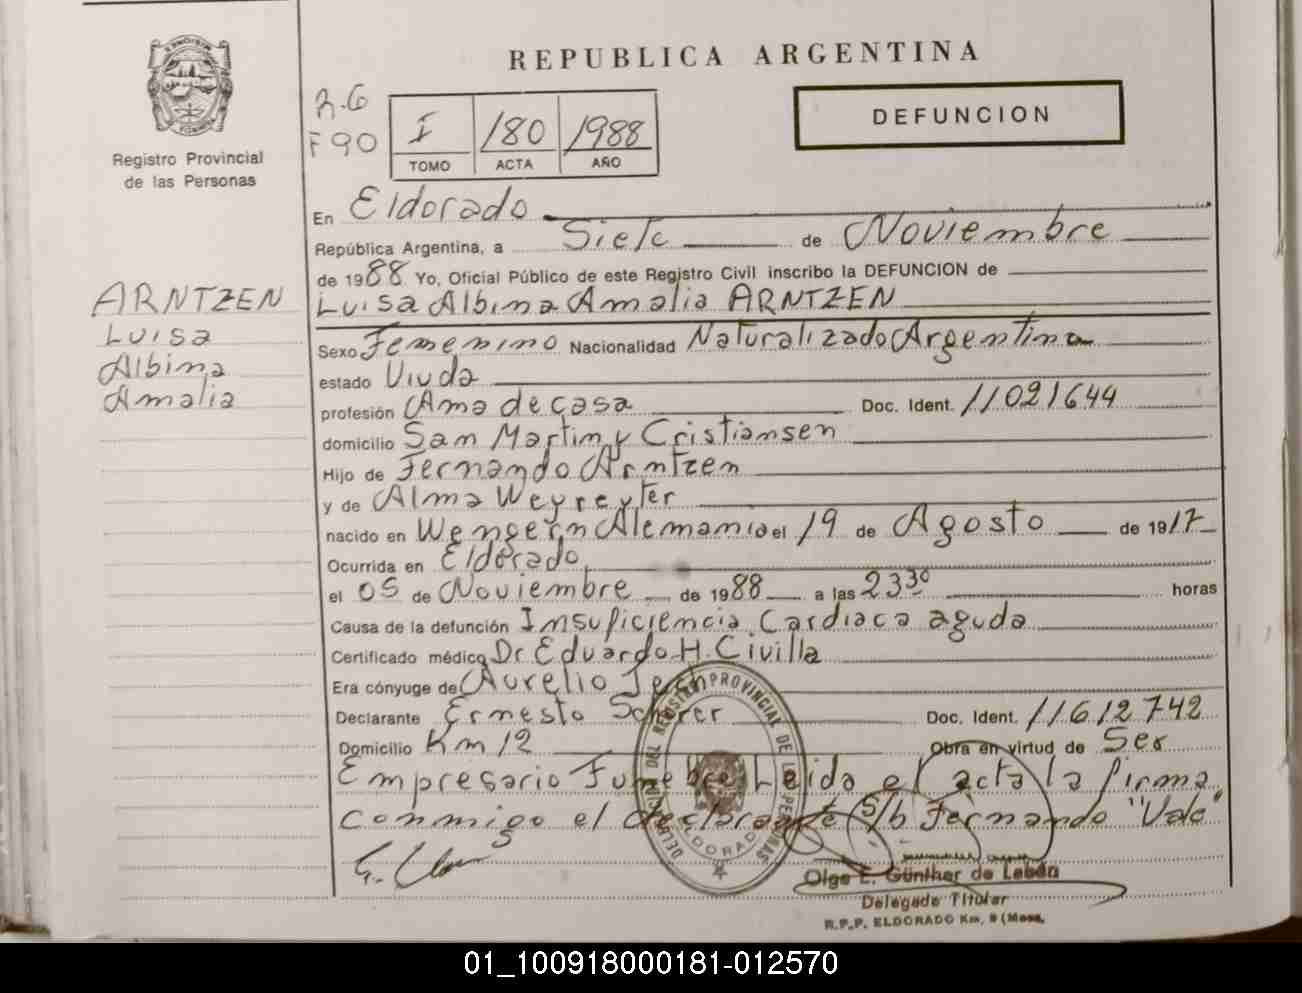 REPUBLICA ARGENTINA
DEFUNCION
F 90
I 180 1988
TOMO ACTA AÑO
Registro Provincial
de las Personas
En Eldorado
República Argentina, a Siete de Noviembre
de 1988 Yo, Oficial Público de este Registro Civil inscribo la DEFUNCION de
Luisa Albina Amalia ARNTZEN
ARNTZEN
Luisa
Albina
Amalia
Sexo Femenino Nacionalidad Naturalizado Argentina
estado Viuda
profesión Ama de casa Doc. Ident. 11021644
domicilio San Martin y Cristiansen
Hijo de Fernando Arntzen
y de Alma Weyreyter
nacido en Wengern Alemania el 19 de Agosto de 1917
Ocurrida en Eldorado
el 05 de Noviembre de 1988 a las 23 30 horas
Causa de la defunción Insuficiencia Cardiaca aguda
Certificado médico Dr Eduardo H. Civilla
Era cónyuge de Aurelio
Declarante Ernesto Scherer Doc. Ident. 11612742
Domicilio Km 12 Obra en virtud de Ser
Empresario Funebre Leida el acta la firma
conmigo el declarante S/b Fernando "Vale"
DELEGACIA DEL REGISTRO PROVINCIAL DE LAS PERSONAS
ELDORADO
Olga E. Günther de Lebán
Delegado Titular
R.P.P. ELDORADO Km. 9 (Mnes.
01_100918000181-012570